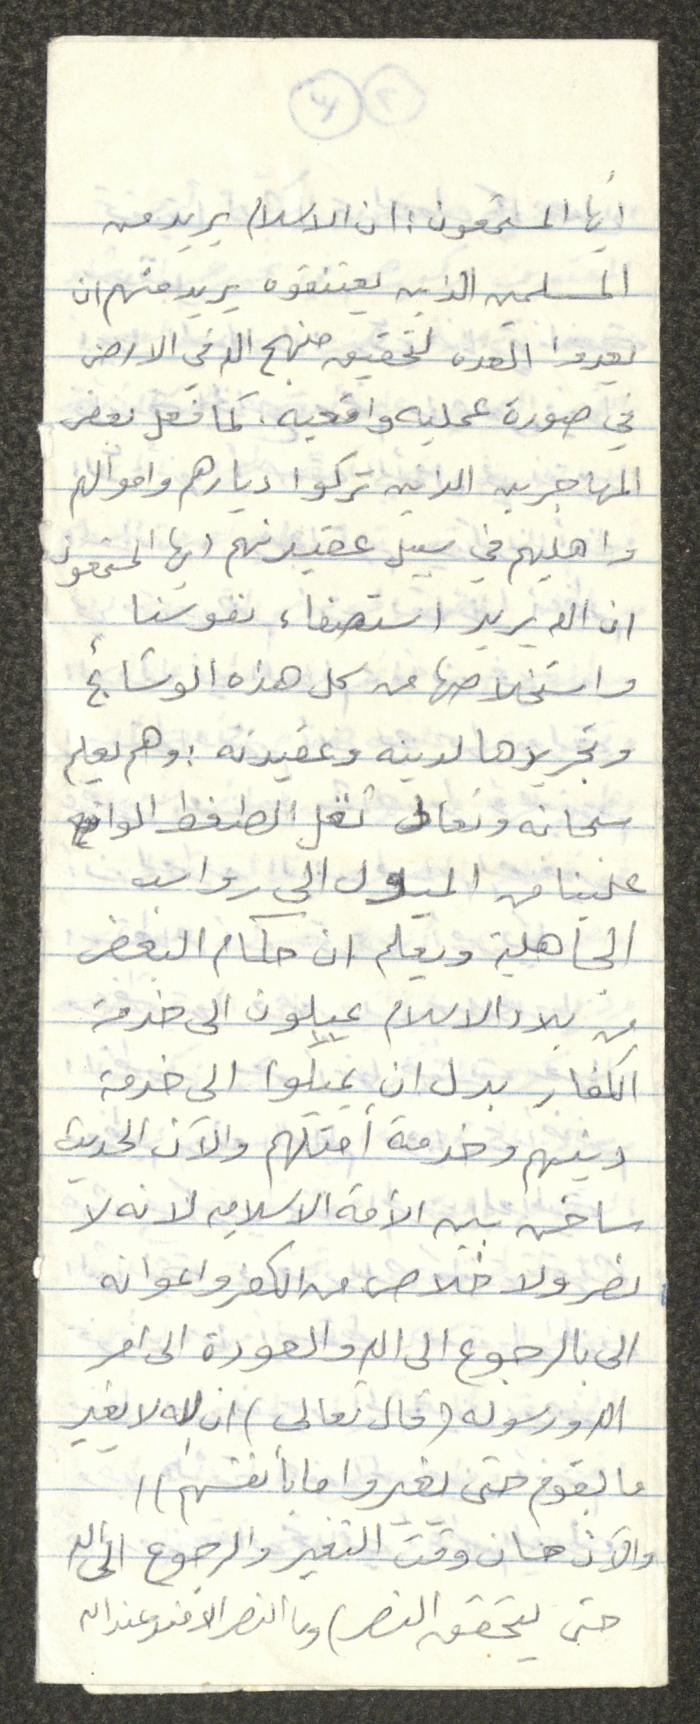 ٢ ٣
أيها المستمعون: ان الاسلام يريد من
المسلمين الذين يعتنقوه يريد منهم ان
يعدوا العده لتحقيق منهج الله في الارض
في صورة عمليه واقعيه. كما فعل بعض
المهاجرين الذين تركوا ديارهم واموالهم
واهليهم في سبيل عقيدتهم ايها المستمعون
ان الله يريد استصفاء نفوسنا
واستخلاصها من كل هذه الوشائج
وتجريدها لدينه وعقيدته: وهم يعلم
سبحانه وتعالى ثقل الضغط الواقع
علينا من الميول الى رواسب
الجاهلية ويعلم ان حكام البعض
من بلاد الاسلام عيلون الى خدمة
الكفار بدل ان يميلوا الى خدمة
دينهم وخدمة أمتهم والآن الحديث
ساخن بين الأمة الاسلاميه لانه لا
نصر ولا خلاص من الكفر واعوانه
الى بالرجوع الى الله والعودة الى امر
الله ورسوله (قال تعالى) ان الله لا يغير
ما بقوم حتى يغيروا ما بأنفسهم))
والآن حان وقت التغير والرجوع الى الله
حتى يتحقق النصر) وما النصر الا من عند الله